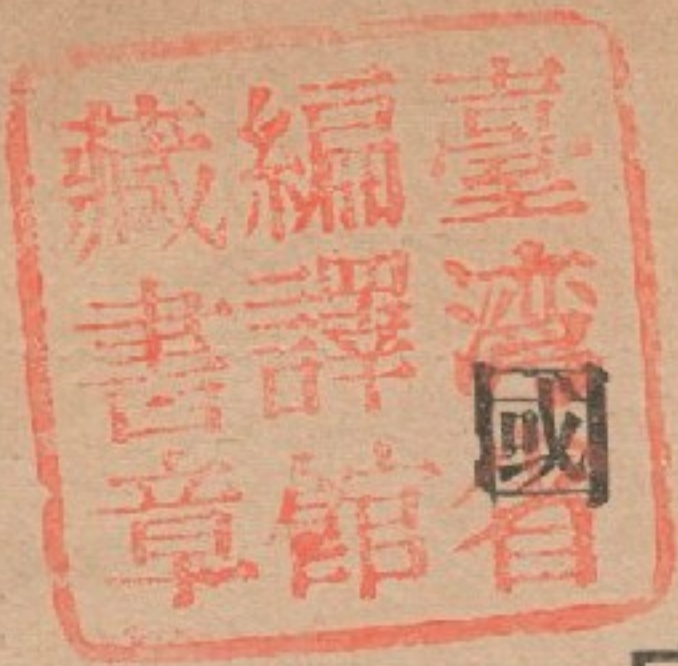 臺灣省
編譯館
藏書章
國